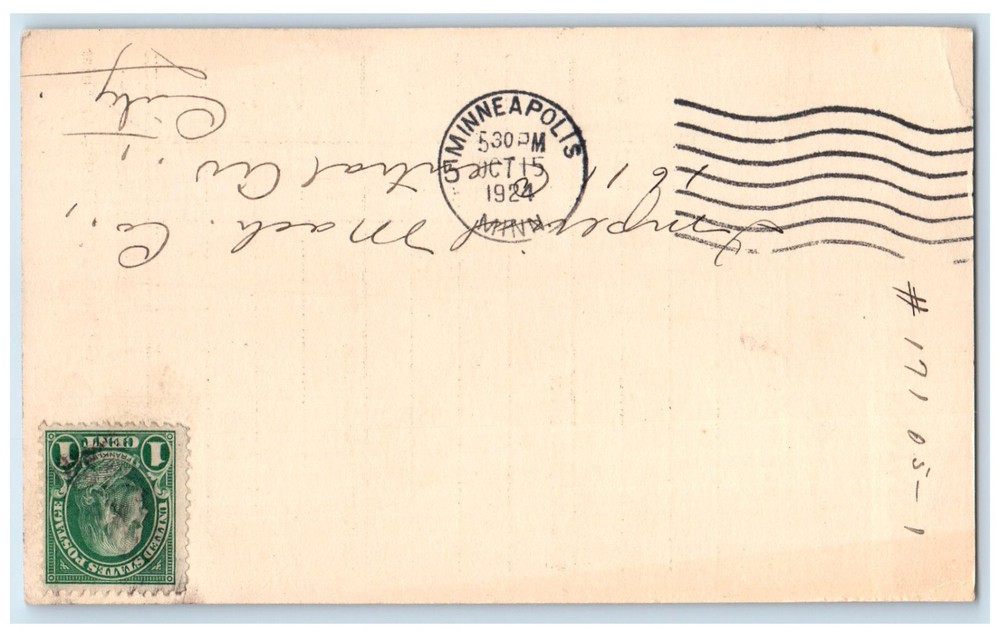 MINNEAPOLIS
5 30 PM
OCT 15
1924
MINN
Imperial Mach. Co.,
Central Av
City
# 171 05-1
UNITED STATES POSTAGE
FRANKLIN
1 CENT 1